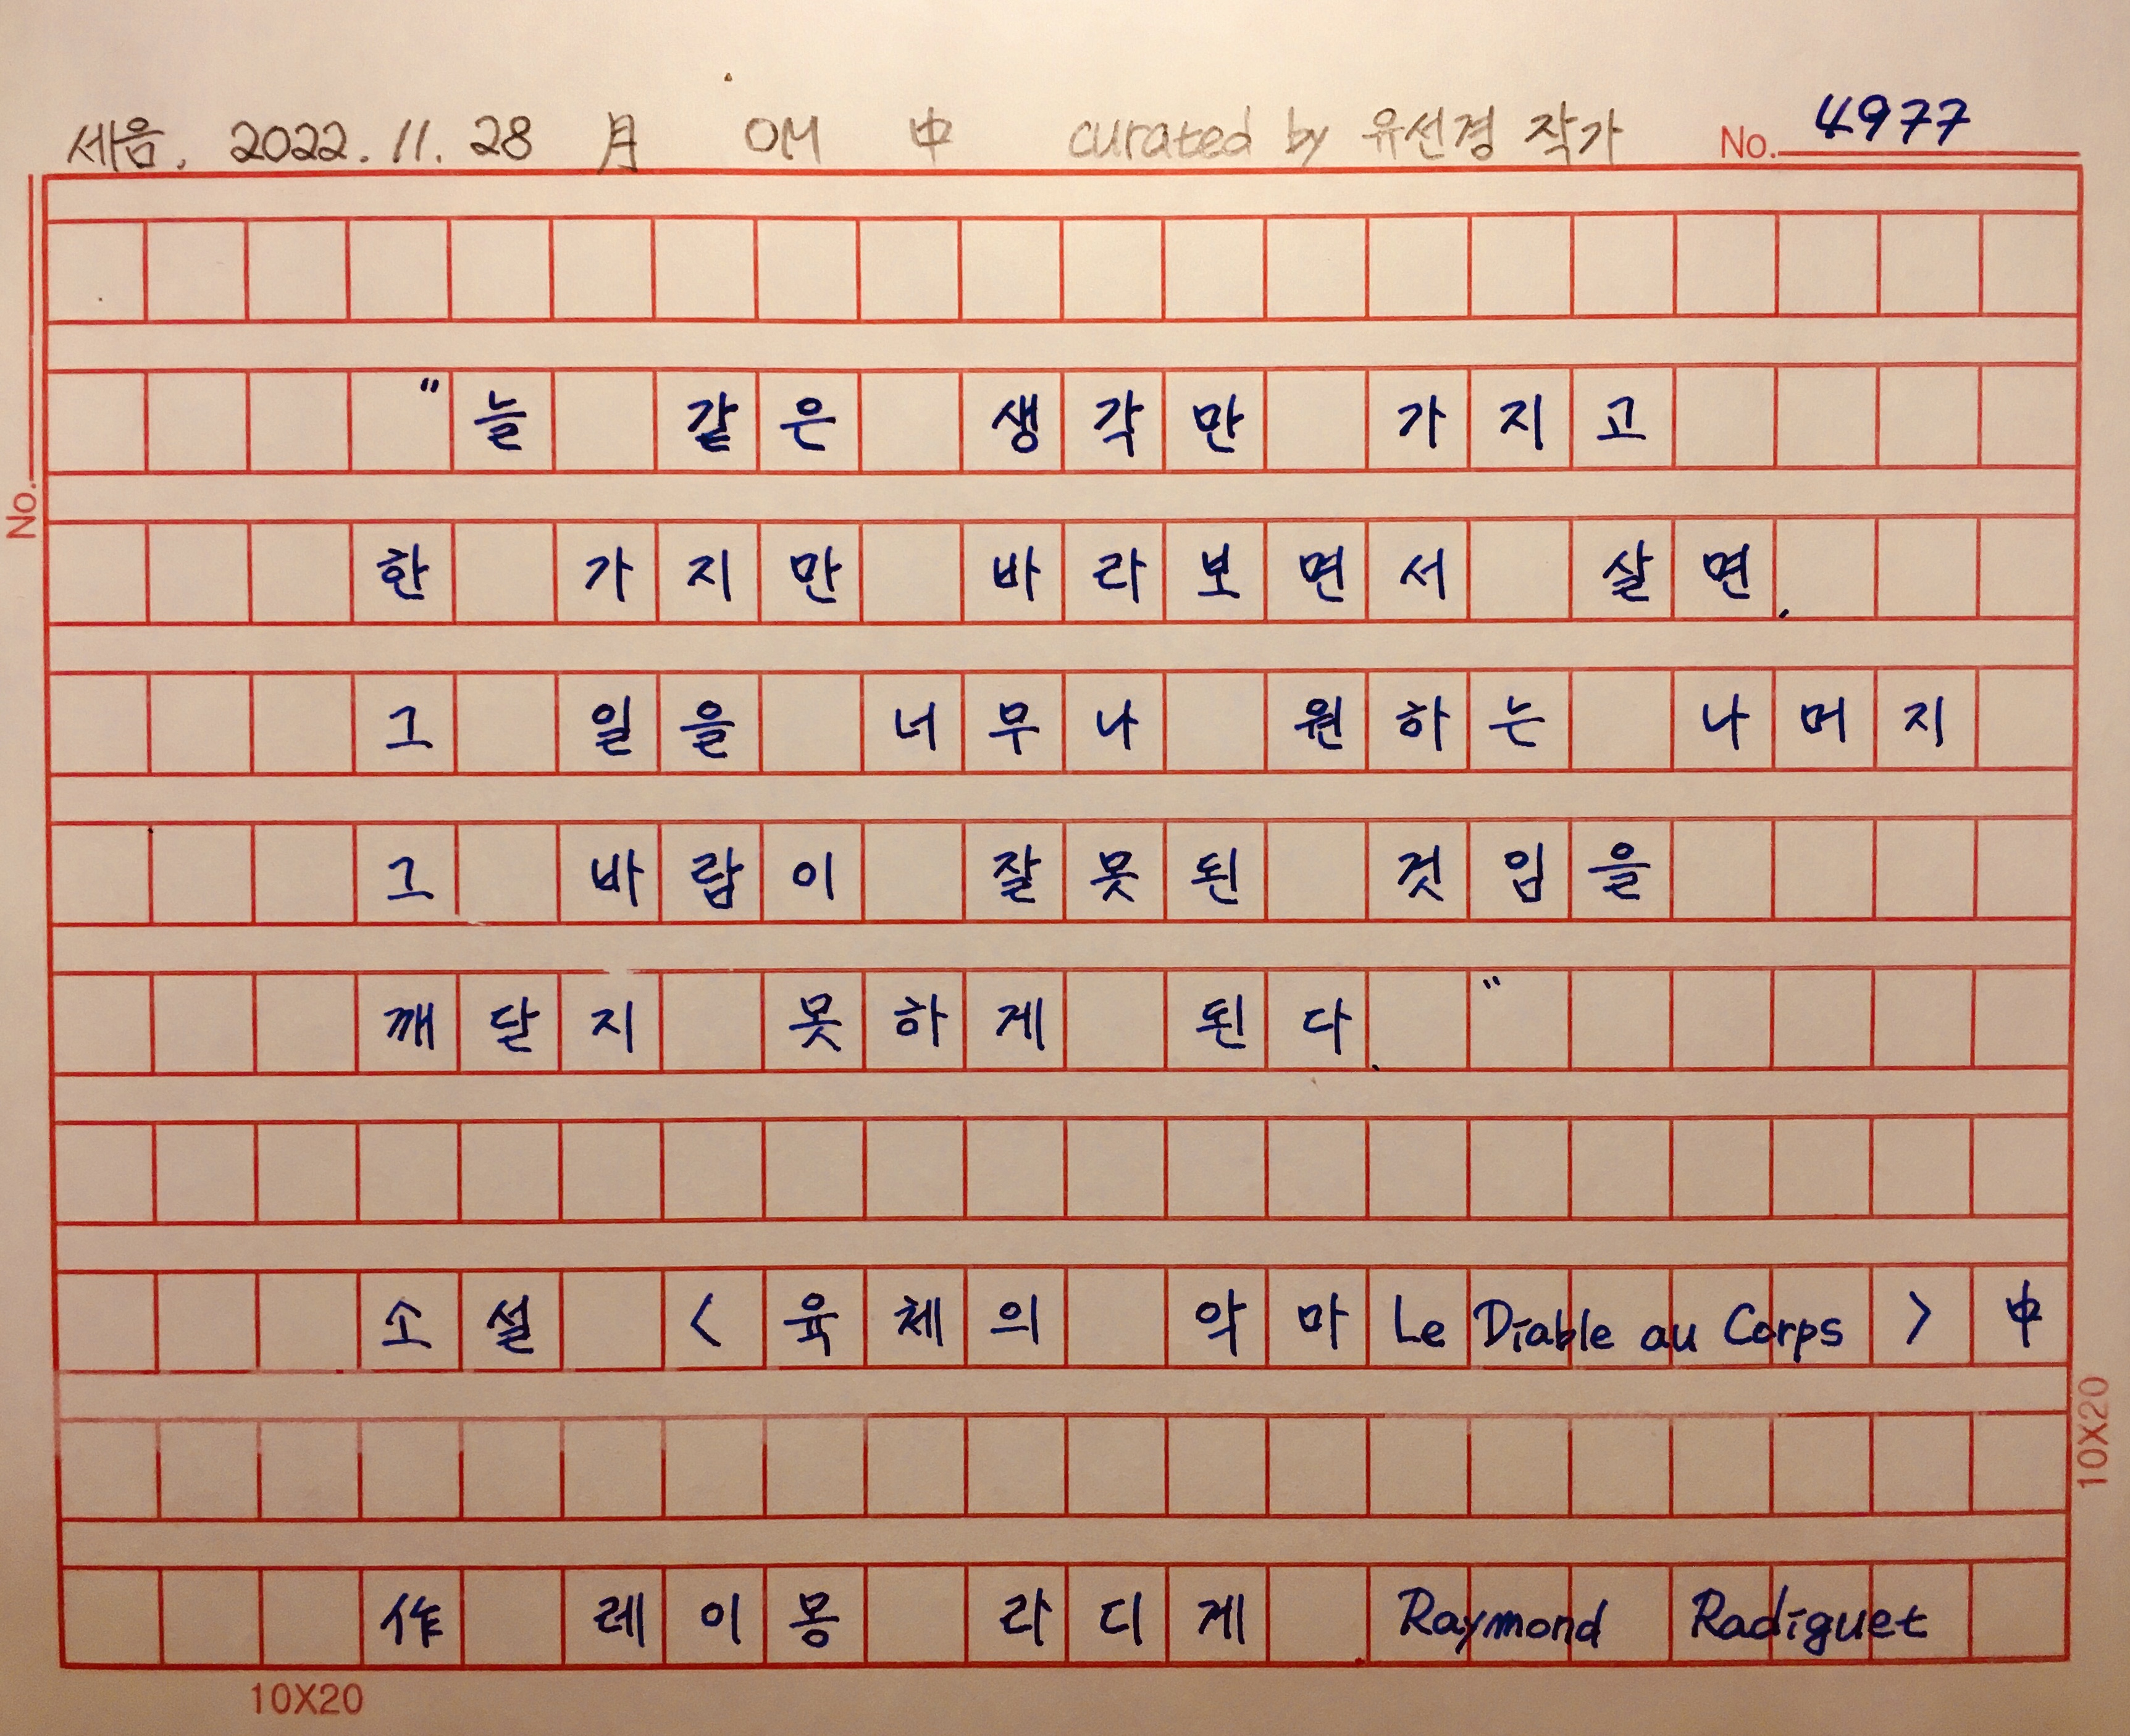 세음. 2022. 11. 28 月 OM 中 curated by 유선경 작가 No. 4977
"늘 같은 생각만 가지고
한 가지만 바라보면서 살면,
그 일을 너무나 원하는 나머지
No.
그 바람이 잘못된 것임을
깨닫지 못하게 된다."
소설 <육체의 악마 Le Diable au Corps> 中
作 레이몽 라디게 Raymond Radiguet
10X20
10X20